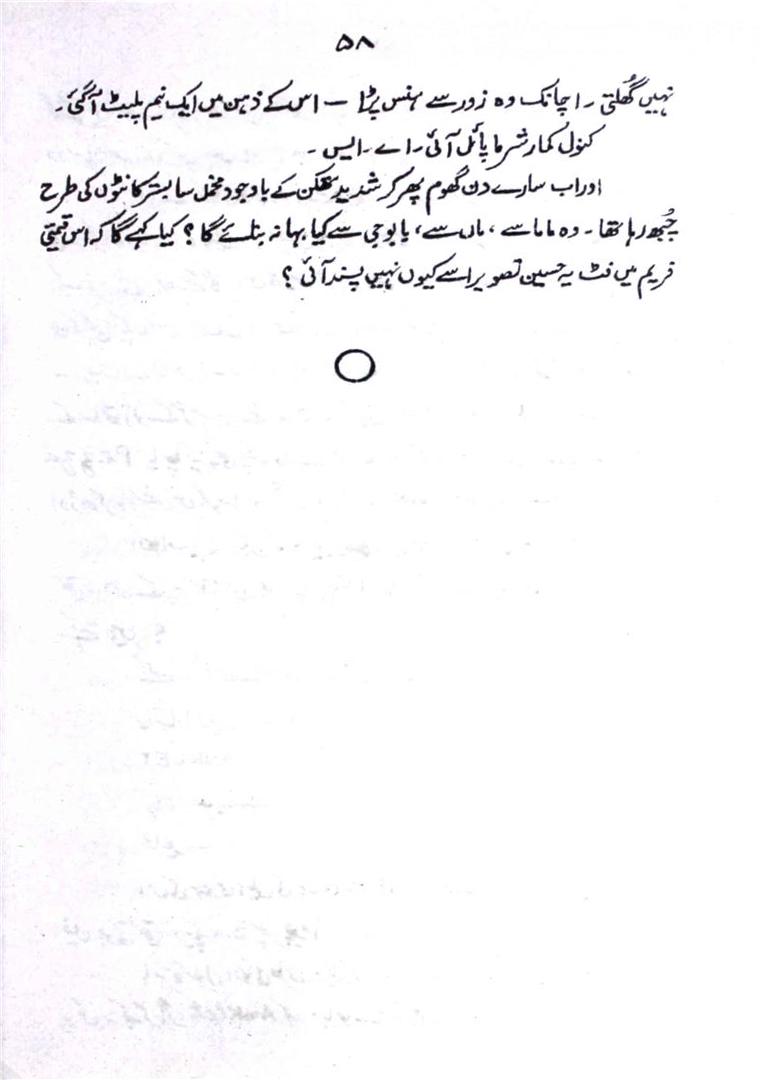 ۵۸
نہیں گھُلتی ۔ اچانک وہ زور سے ہنس پڑا — اس کے ذہن میں ایک نیم پلیٹ آ گئی ۔
کنول کمار شرما پائل آئی ۔ اے ۔ ایس ۔
اور اب سارے دن گھوم پھر کر شدید تھکن کے باوجود مخمل سا بستر کانٹوں کی طرح
چُبھ رہا تھا ۔ وہ ماما سے ، ماں سے ، بابو جی سے کیا بہانہ بنائے گا ؟ کیا کہے گا کہ اس قیمتی
فریم میں فٹ یہ حسین تصویر اسے کیوں نہیں پسند آئی ؟